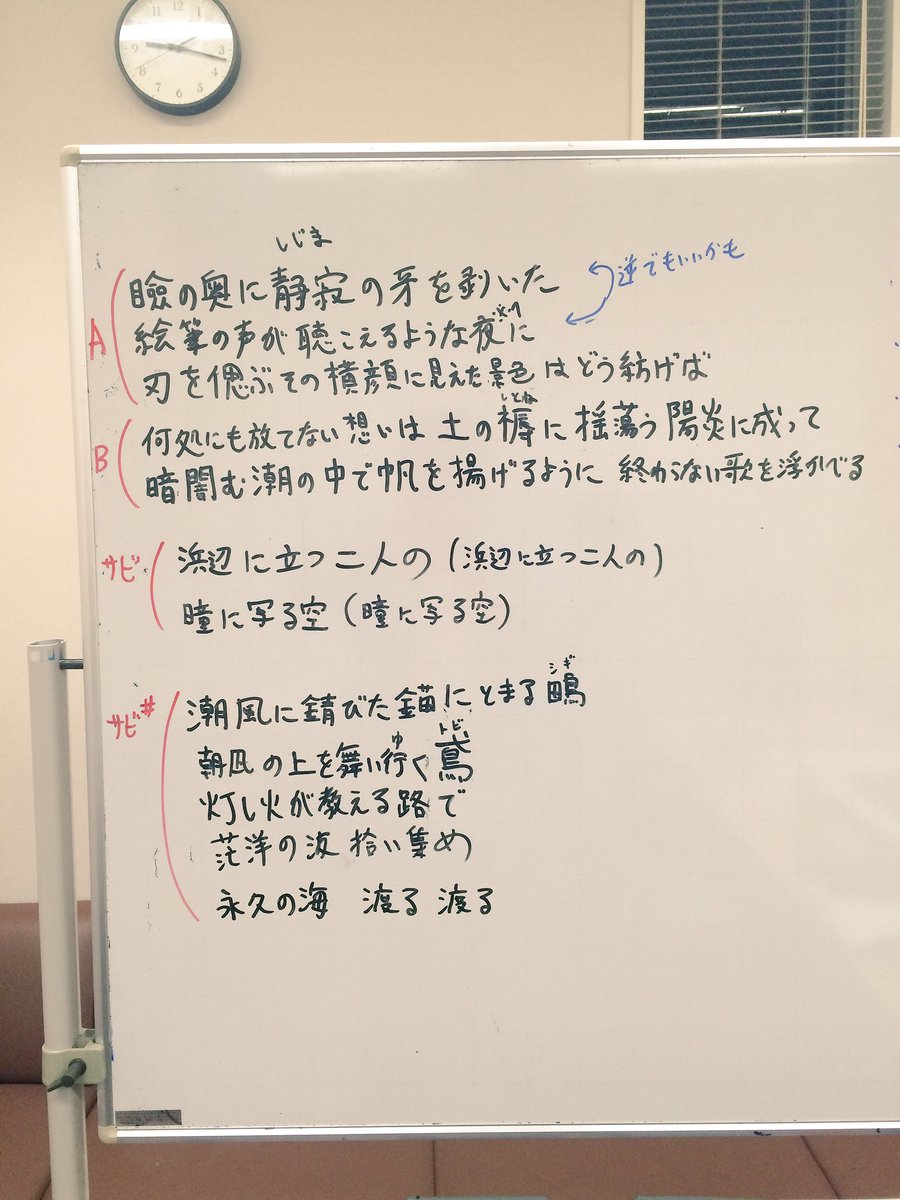 9 3
8 4
7 6 5
しじま
A 瞼の奥に静寂の牙を剥いた
逆でもいいかも
絵筆の声が聴こえるような夜に
刃を偲ぶその横顔に見えた景色はどう紡げば
しとね
B 何処にも放てない想いは土の褥に揺蕩う陽炎に成って
暗闇む潮の中で帆を揚げるように 終わらない歌を浮かべる
サビ 浜辺に立つ二人の(浜辺に立つ二人の)
瞳に写る空(瞳に写る空)
シギ
サビ# 潮風に錆びた錨にとまる鴫
ゆ トビ
朝凪の上を舞い行く鳶
灯し火が教える路で
茫洋の波 拾い集め
永久の海 渡る 渡る